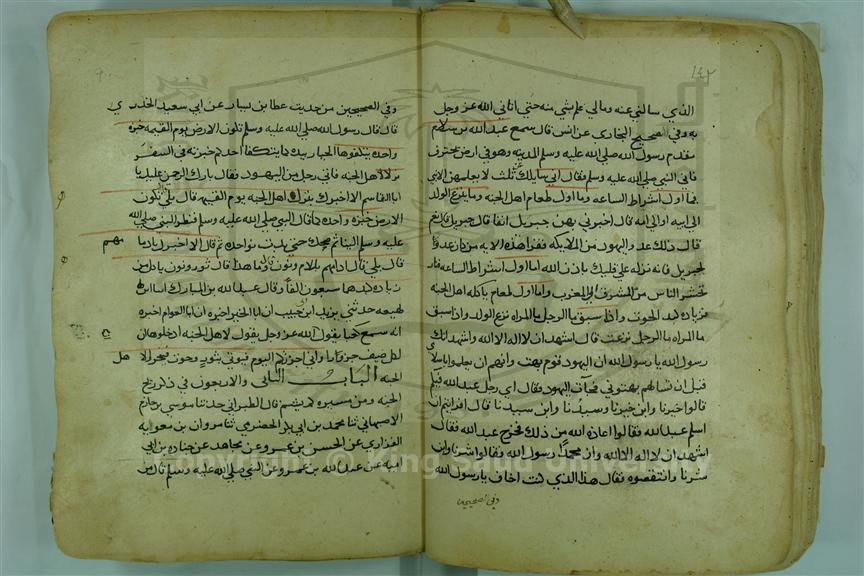 ١٤٢
الذي سالني عنه ومالي علم بشي منه حتى اتاني الله عز وجل
به وفي الصحيح البخاري عن انس قال سمع عبد الله بن سلام
مقدم رسول الله صلى الله عليه وسلم المدينه وهو في ارض يخترف
فاتى النبي صلى الله عليه وسلم فقال اني سايلك عن ثلث لا يعلمهن الا نبي
فما اول اشراط الساعه وما اول طعام اهل الجنه وما ينزع الولد
الى ابيه او الى امه قال اخبرني بهن جبريل انفا قال جبريل قال نعم
قال ذلك عدو اليهود من الملايكه فقرا هذه الايه من كان عدوا
لجبريل فانه نزله على قلبك باذن الله اما اول اشراط الساعه فنار
تحشر الناس من المشرق الى المغرب واما اول طعام ياكله اهل الجنه
فزياده كبد الحوت واذا سبق ما الرجل ما المراه نزع الولد واذا سبق
ما المراه ما الرجل نزعت قال اشهد ان لا اله الا الله واشهد انك
رسول الله يا رسول الله ان اليهود قوم بهت وانهم ان يعلموا باسلامي
قبل ان تسالهم بهتوني فجات اليهود فقال اي رجل عبد الله فيكم
قالوا خيرنا وابن خيرنا وسيدنا وابن سيدنا قال افرايتم ان
اسلم عبد الله فقالوا اعاذه الله من ذلك فخرج عبد الله فقال
اشهد ان لا اله الا الله وان محمدا رسول الله فقالوا شرنا وابن
شرنا وانتقصوه فقال هذا الذي كنت اخاف يا رسول الله
وفي الصحيحين
وفي الصحيحين من حديث عطا بن يسار عن ابي سعيد الخدري
قال قال رسول الله صلى الله عليه وسلم تكون الارض يوم القيمه خبزه
واحده يتكفوها الجبار بيده كما يتكفا احدكم خبزته في السفر
نزلا لاهل الجنه فاتى رجل من اليهود فقال بارك الرحمن عليك يا
ابا القاسم الا اخبرك بنزل اهل الجنه يوم القيمه قال بلى قال تكون
الارض خبزه واحده كما قال النبي صلى الله عليه وسلم فنظر النبي صلى الله
عليه وسلم الينا ثم ضحك حتى بدت نواجده ثم قال الا اخبرك بادامهم
قال بلى قال ادامهم بالام ونون قالوا وما هذا قال ثور ونون ياكل من
زياده كبدهما سبعون الفا وقال عبد الله بن المبارك انبا ابن
لهيعه حدثني يزيد بن ابي حبيب ان ابا الخير اخبره ان ابا العوام اخبره
انه سمع كعبا يقول الله عز وجل يقول لاهل الجنه ادخلوها ان
لكل ضيف جزورا واني اجزركم اليوم فيوتى بثور وحوت فيجزر لاهل
الجنه الباب الثاني والاربعون في ذكر ريح
الجنه ومن مسيره كم ينشم قال الطبراني حدثنا موسى بن حازم
الاصبهاني ثنا محمد بن ابي بكر الحضرمي ثنا مروان بن معويه
الفزاري عن الحسن بن عمرو عن مجاهد عن جناده بن ابي
اميه عن عبد الله بن عمرو عن النبي صلى الله عليه وسلم قال من
Copyright © King Saud University